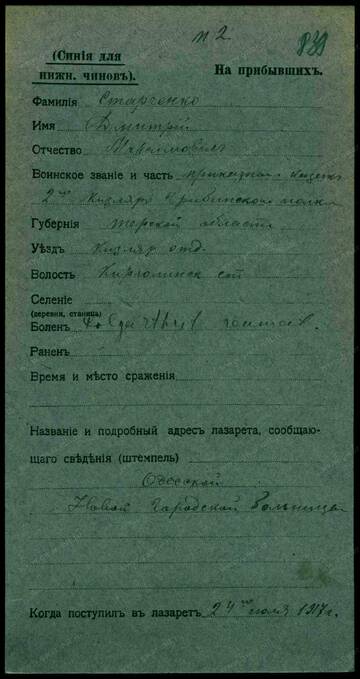 № 2
839
(Синія для
нижн. чиновъ).
На прибывшихъ.
Фамилія Старченко
Имя Дмитрій
Отчество Максимовичъ
Воинское званіе и часть приказной
2го Кизляро Гребинской полка
Губернія Терской области
Уѣздъ Кизляр отд.
Волость ст
Селеніе
(деревня, станица)
Боленъ
Раненъ
Время и мѣсто сраженія
Названіе и подробный адресъ лазарета, сообщаю-
щаго свѣдѣнія (штемпель)
Одесской
Новой Городской Больница
Когда поступилъ въ лазаретъ 24го 1917 г.